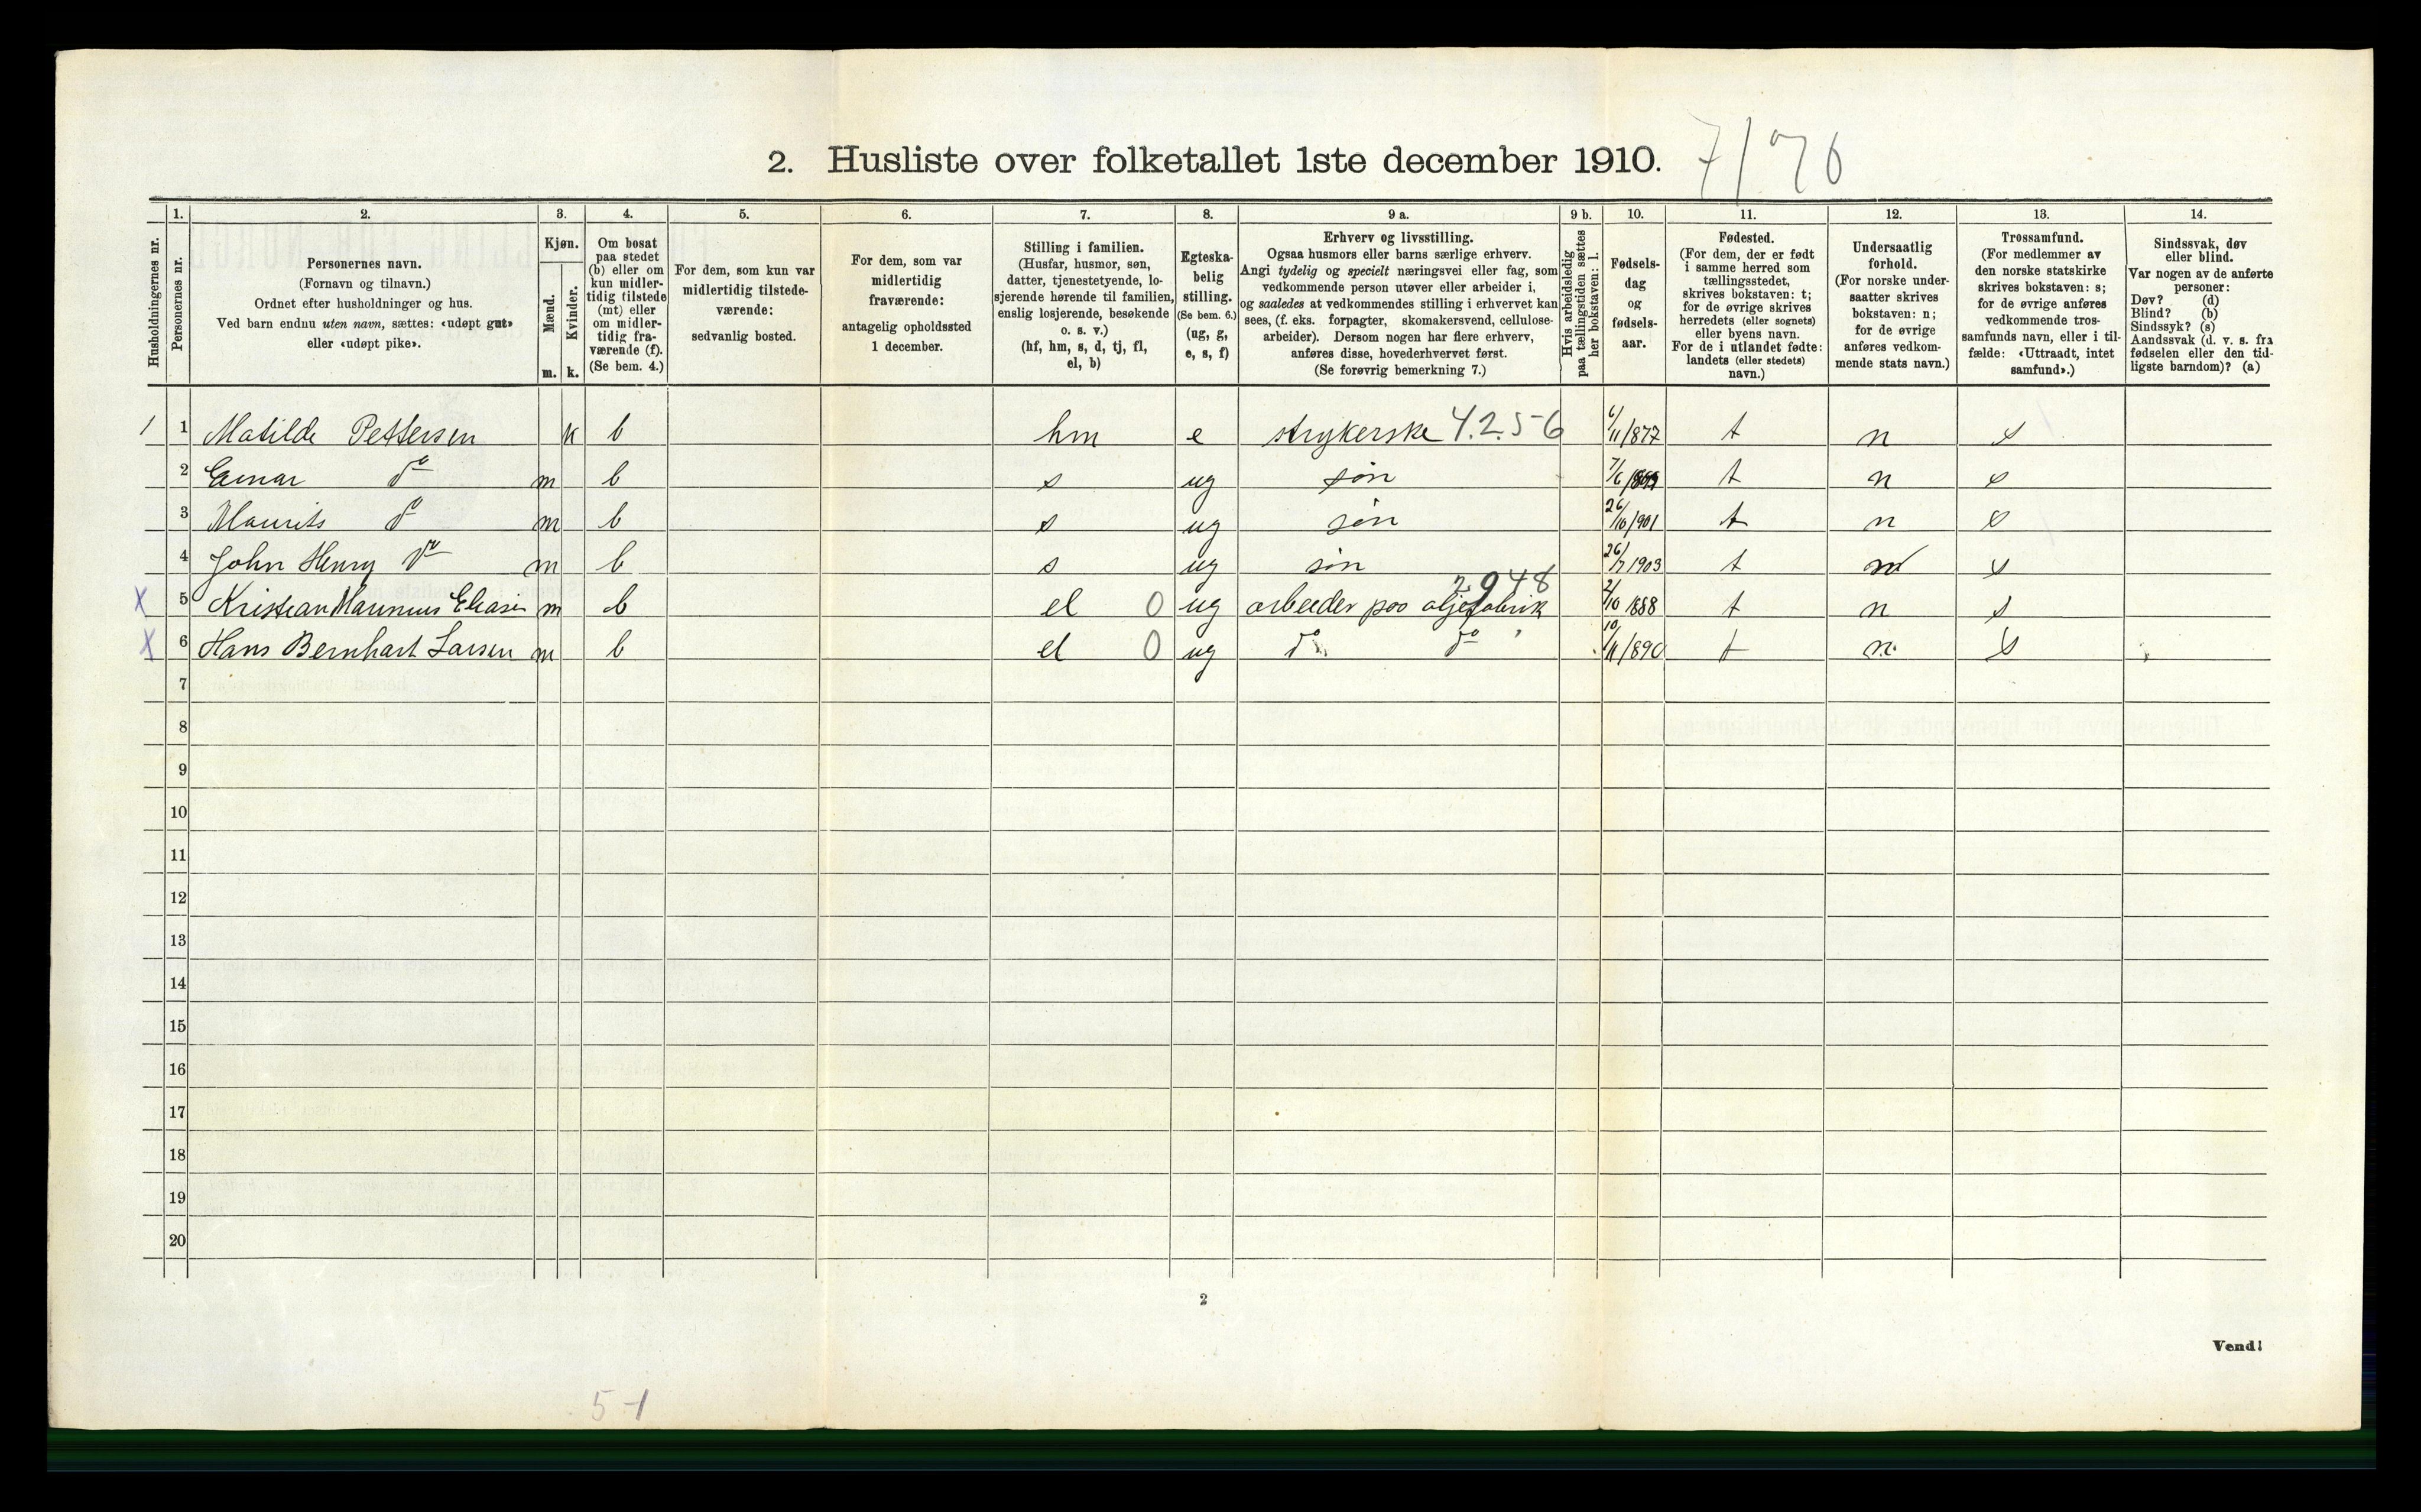 2. Husliste over folketallet 1ste december 1910. 7/76
1. 2. 3. 4. 5. 6. 7. 8. 9 a. 9 b. 10. 11. 12. 13. 14.
Husholdningernes nr.
Personernes nr.
Personernes navn.
(Fornavn og tilnavn.)
Ordnet efter husholdninger og hus.
Ved barn endnu uten navn, sættes: «udøpt gut»
eller «udøpt pike».
Kjøn.
Mænd.
Kvinder.
m. k.
Om bosat
paa stedet
(b) eller om
kun midler-
tidig tilstede
(mt) eller
om midler-
tidig fra-
værende (f).
(Se bem. 4.)
For dem, som kun var
midlertidig tilstede-
værende:
sedvanlig bosted.
For dem, som var
midlertidig
fraværende:
antagelig opholdssted
1 december.
Stilling i familien.
(Husfar, husmor, søn,
datter, tjenestetyende, lo-
sjerende hørende til familien,
enslig losjerende, besøkende
o. s. v.)
(hf, hm, s, d, tj, fl,
el, b)
Egteska-
belig
stilling.
(Se bem. 6.)
(ug, g,
e, s, f)
Erhverv og livsstilling.
Ogsaa husmors eller barns særlige erhverv.
Angi tydelig og specielt næringsvei eller fag, som
vedkommende person utøver eller arbeider i,
og saaledes at vedkommendes stilling i erhvervet kan
sees, (f. eks. forpagter, skomakersvend, cellulose-
arbeider). Dersom nogen har flere erhverv,
anføres disse, hovederhvervet først.
(Se forøvrig bemerkning 7.)
Hvis arbeidsledig
paa tællingstiden sættes
her bokstaven: l.
Fødsels-
dag
og
fødsels-
aar.
Fødested.
(For dem, der er født
i samme herred som
tællingsstedet,
skrives bokstaven: t;
for de øvrige skrives
herredets (eller sognets)
eller byens navn.
For de i utlandet fødte:
landets (eller stedets)
navn.)
Undersaatlig
forhold.
(For norske under-
saatter skrives
bokstaven: n;
for de øvrige
anføres vedkom-
mende stats navn.)
Trossamfund.
(For medlemmer av
den norske statskirke
skrives bokstaven: s;
for de øvrige anføres
vedkommende tros-
samfunds navn, eller i til-
fælde: «Uttraadt, intet
samfund».)
Sindssvak, døv
eller blind.
Var nogen av de anførte
personer:
Døv? (d)
Blind? (b)
Sindssyk? (s)
Aandssvak (d. v. s. fra
fødselen eller den tid-
ligste barndom)? (a)
1 1 Matilde Pettersen k b hm e strykerske 4.2.56 6/11/877 t n s
2 Einar do m b s ug søn 7/6 t n s
3 Maurits do m b s ug søn 26/10/901 t n s
4 John Henry do m b s ug søn 26/7 1903 t n s
2.948
X 5 Kristian Marinius Eliasen m b el 0 ug arbeider paa oljefabrik 2/10 1888 t n s
X 6 Hans Bernhart Larsen m b el 0 ug do do 10/11/890 t n s
7
8
9
10
11
12
13
14
15
16
17
18
19
20
2
Vend!
5-1